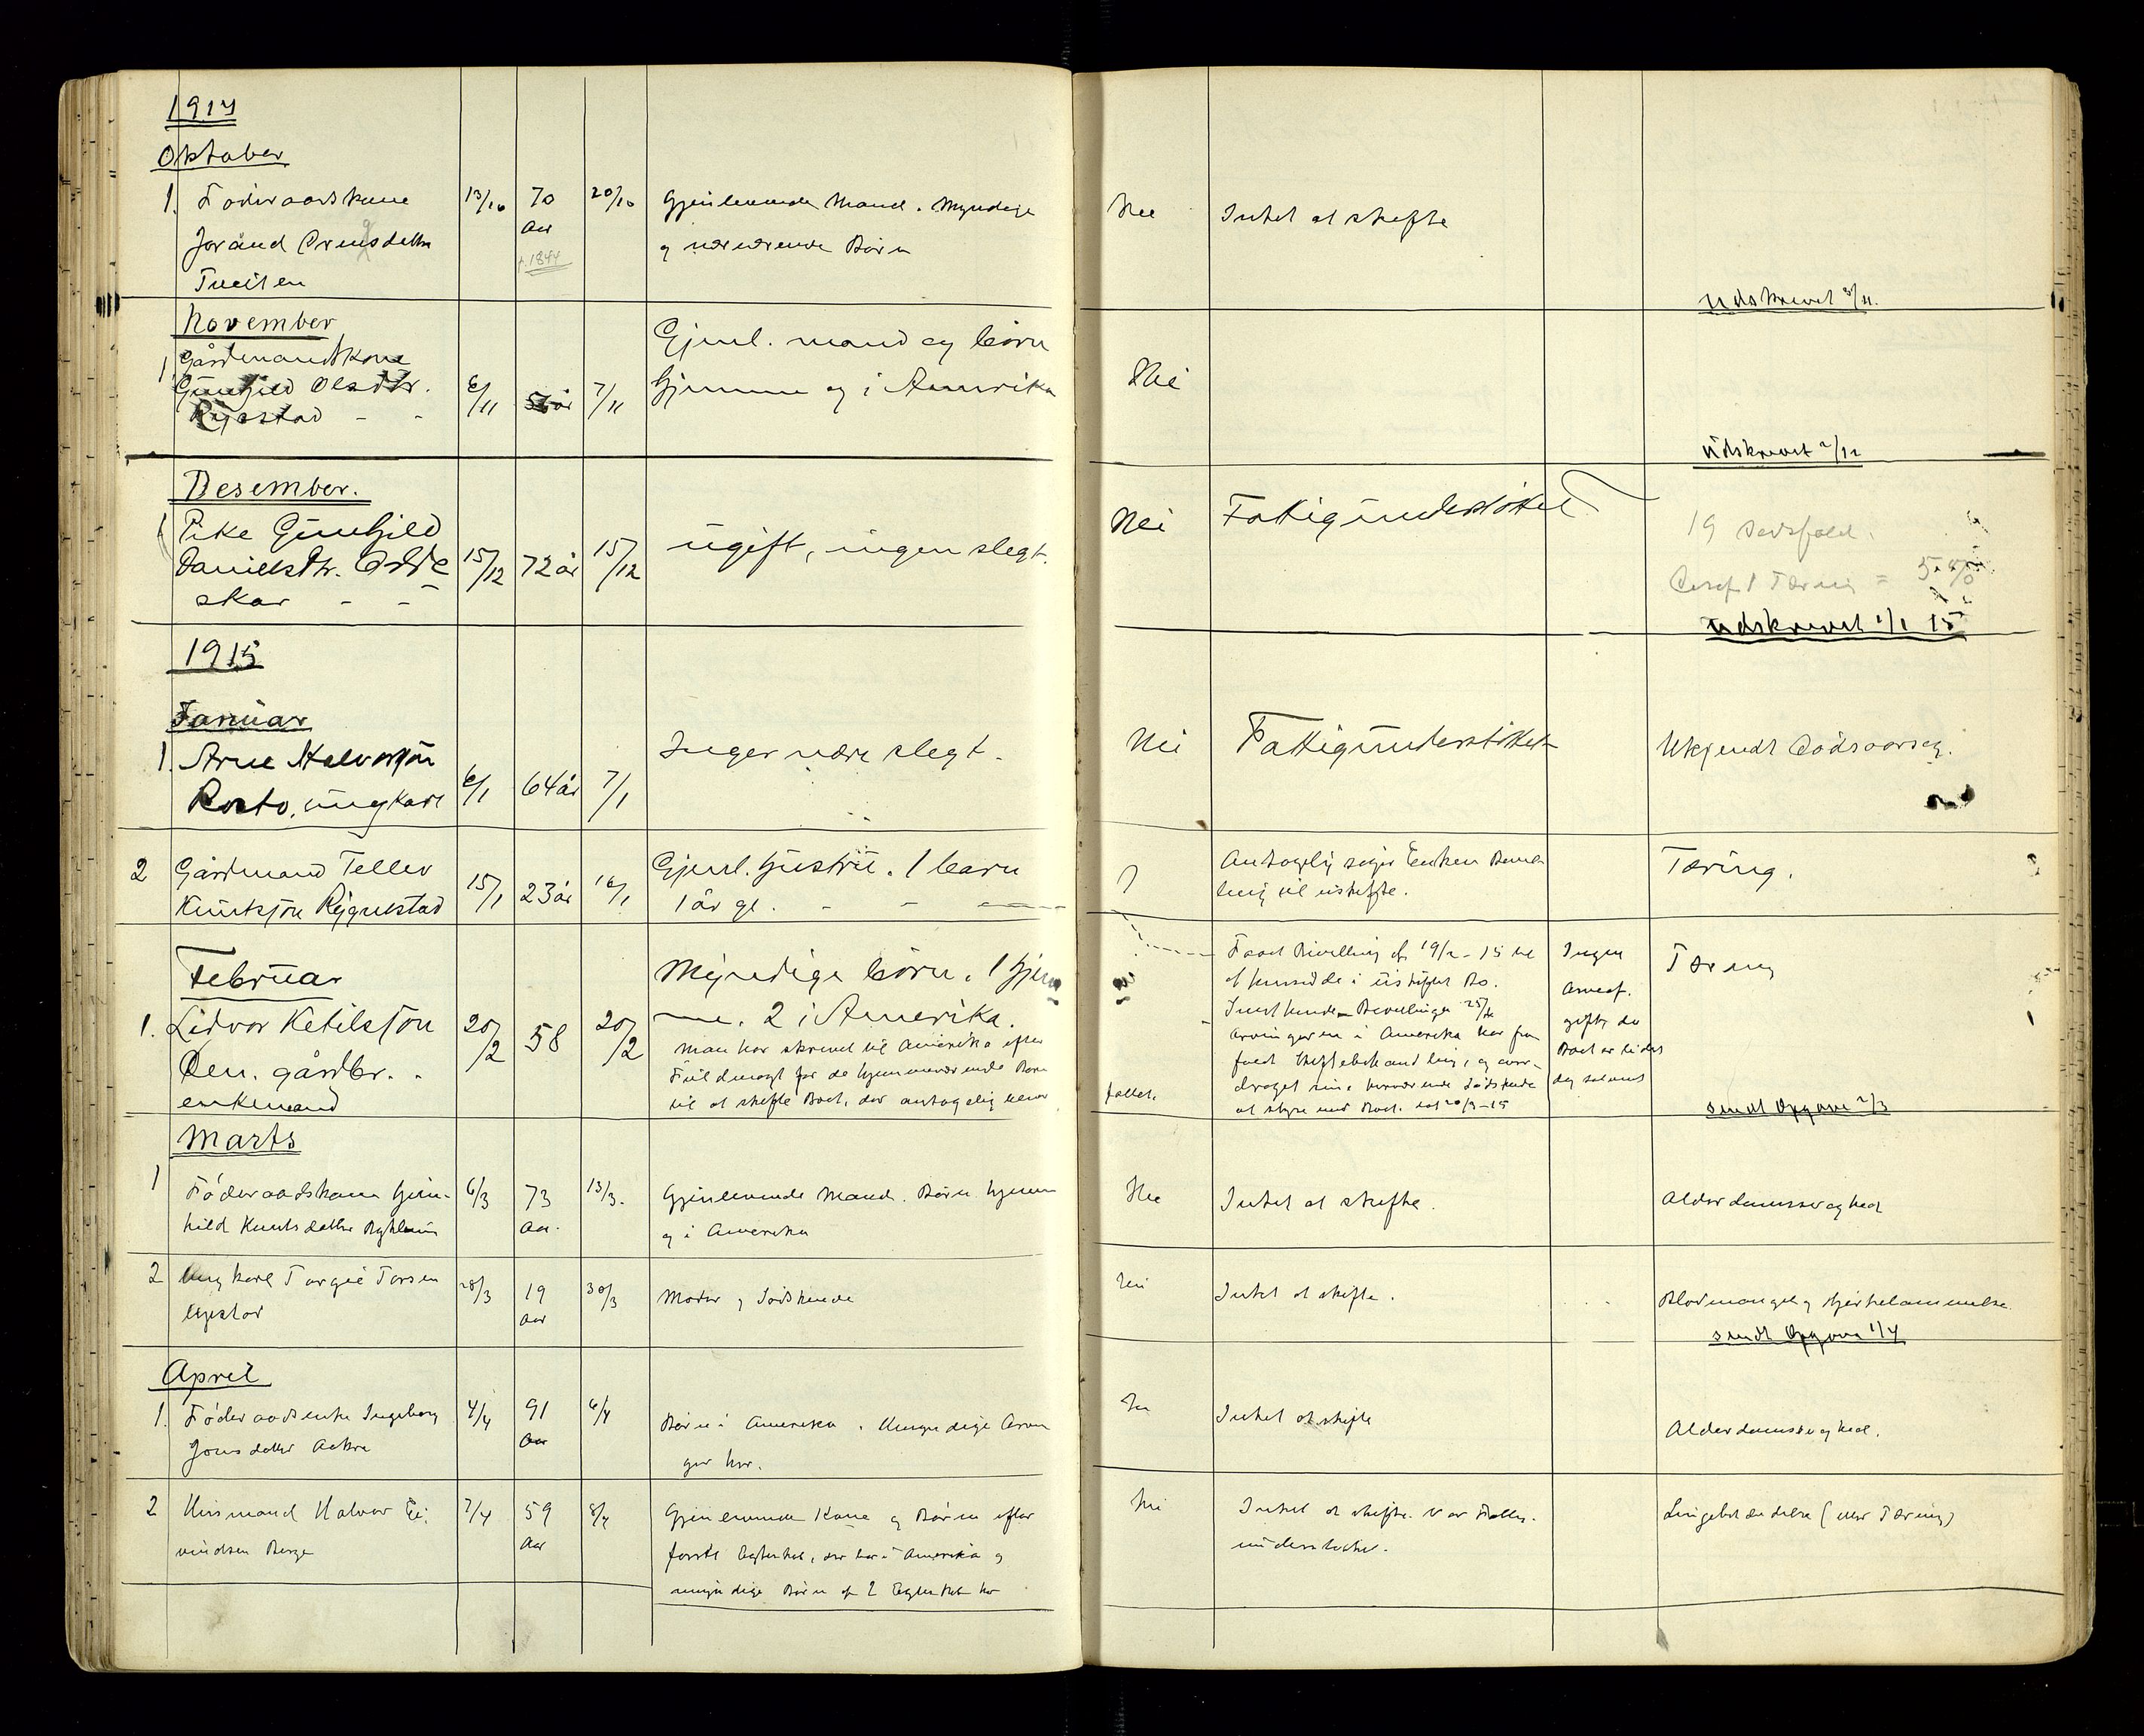 1914
Oktober
1. Føderaadskone 13/10 70 20/10 Gjenlevende Mand. Myndige Nei Intet at skifte
Joraand sdatter Aar og nærværende Børn
Tveiten f. 1844
Udskrevet 3/11.
November
1 Gårdmandskone Gjenl. mand og børn
Gunhild Olsdtr. 6/11 56 år 7/11 hjemme og i Amerika Nei
Rygstad - -
Udskrevet 2/12
Desember.
1 Pike Gunhild Nei Fattigunderstøttet
Danielsdtr. Odde 15/12 72 år 15/12 ugift, ingen slegt. 19 dødsfald.
skar - - 1 Tæring = 5. %
Udskrevet 1/1 15
1915
Januar
1. Arne Halvorsson Ingen nære slegt. Nei Fattigunderstøttet Ukjendt Dødsaarsag.
Rosto, ungkarl 6/1 64 år 7/1
2 Gårdmand Tellev 15/1 23 år 16/1 Gjenl. hustru. 1 barn ? Antagelig søger Enken Bevil- Tæring.
Knutsson Rygnestad 1 år gl. - - ling til uskifte.
Februar Myndige børn. 1 hjem- Faaet Bevilling af 19/2 - 15 til Ingen Tæring
1. Lidvor Ketilsson 20/2 58 20/2 me. 2 i Amerika. at hensidde i uskiftet Bo. Arveaf-
gårdbr. - Man har skrevet til Amerika efter Arvingerne i Amerika har fra- gift, da
enkemand Fuldmagt for de hjemmeværende Børn faldt Skiftebehandling, og over- Boet er lidet
til at skifte Boet, der antagelig bliver fattet. draget sine herværende Sødskende
at styre med Boet. 20/3-15
Sendt Opgave 2/3
Marts
1 Føderaadskone Gun- 6/3 73 13/3. Gjenlevende Mand. Børn hjemme Nei Intet at skifte. Alderdomssvaghed
hild Knutsdatter Aar. og i Amerika
2 Ungkarl Torgie Torsen 28/3 19 30/3 Moder og Sødskende Nei Intet at skifte. Blodmangel og Hjertelammelse.
Aar
Sendt Opgave 1/4
April
1. Føderaadsenke Ingeborg 4/4 91 6/4 Børn i Amerika. Umyndige Arvin Nei Intet at skifte Alderdomssvaghed.
Jonsdatter Aakre Aar ger her.
2 Husmand Halvor Ei- 7/4 59 8/4 Gjenlevende Kone og Børn efter Nei Intet at skifte. Var Fattig- Lungebetændelse (eller Tæring)
vindsen Berge Aar første Egteskab, der bor i Amerika og understøttet.
umyndige Børn af 2 Egteskab her